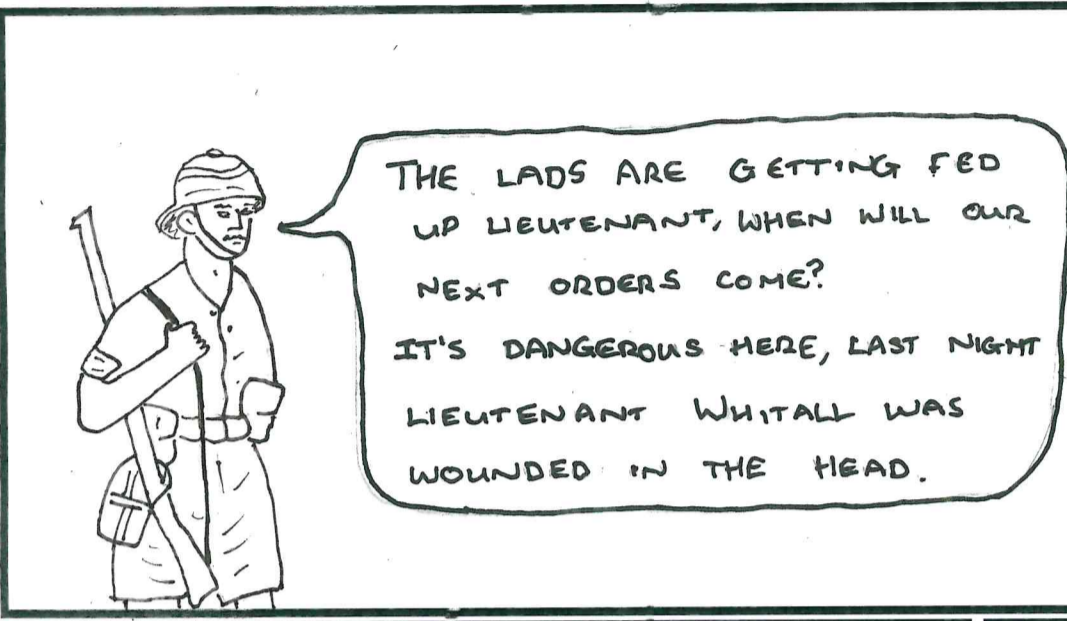 THE LADS ARE GETTING FED
UP LIEUTENANT, WHEN WILL OUR
NEXT ORDERS COME?
IT'S DANGEROUS HERE, LAST NIGHT
LIEUTENANT WHITALL WAS
WOUNDED IN THE HEAD.